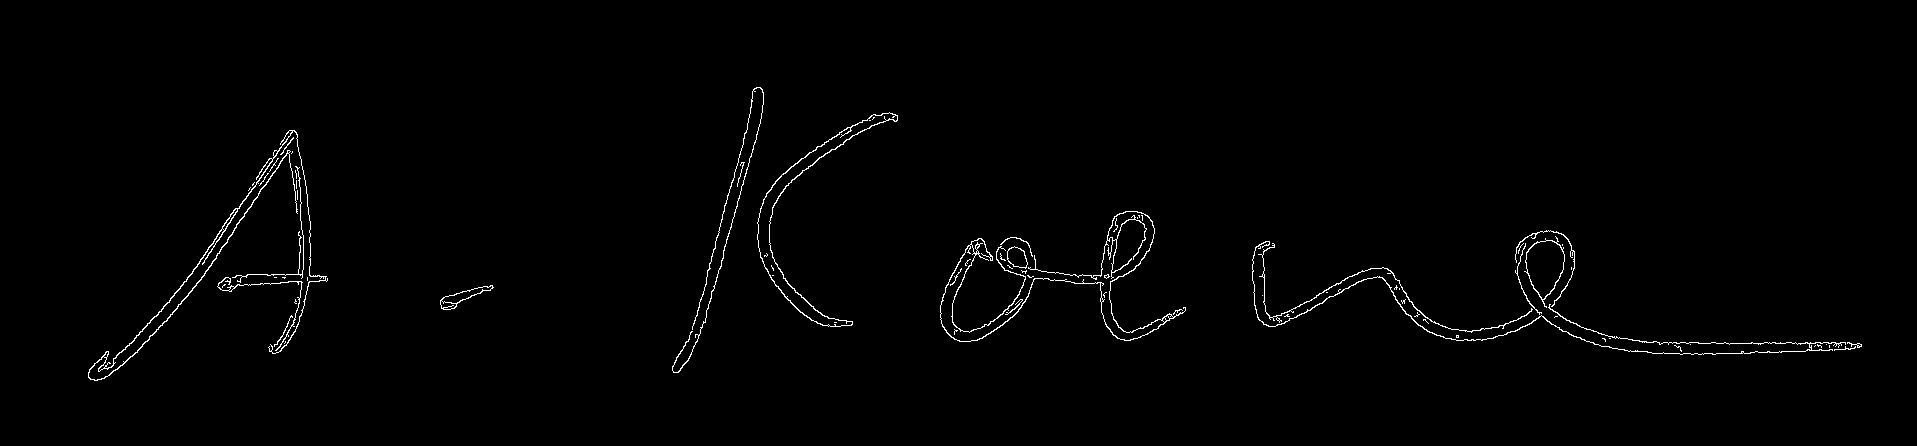 A. Koene